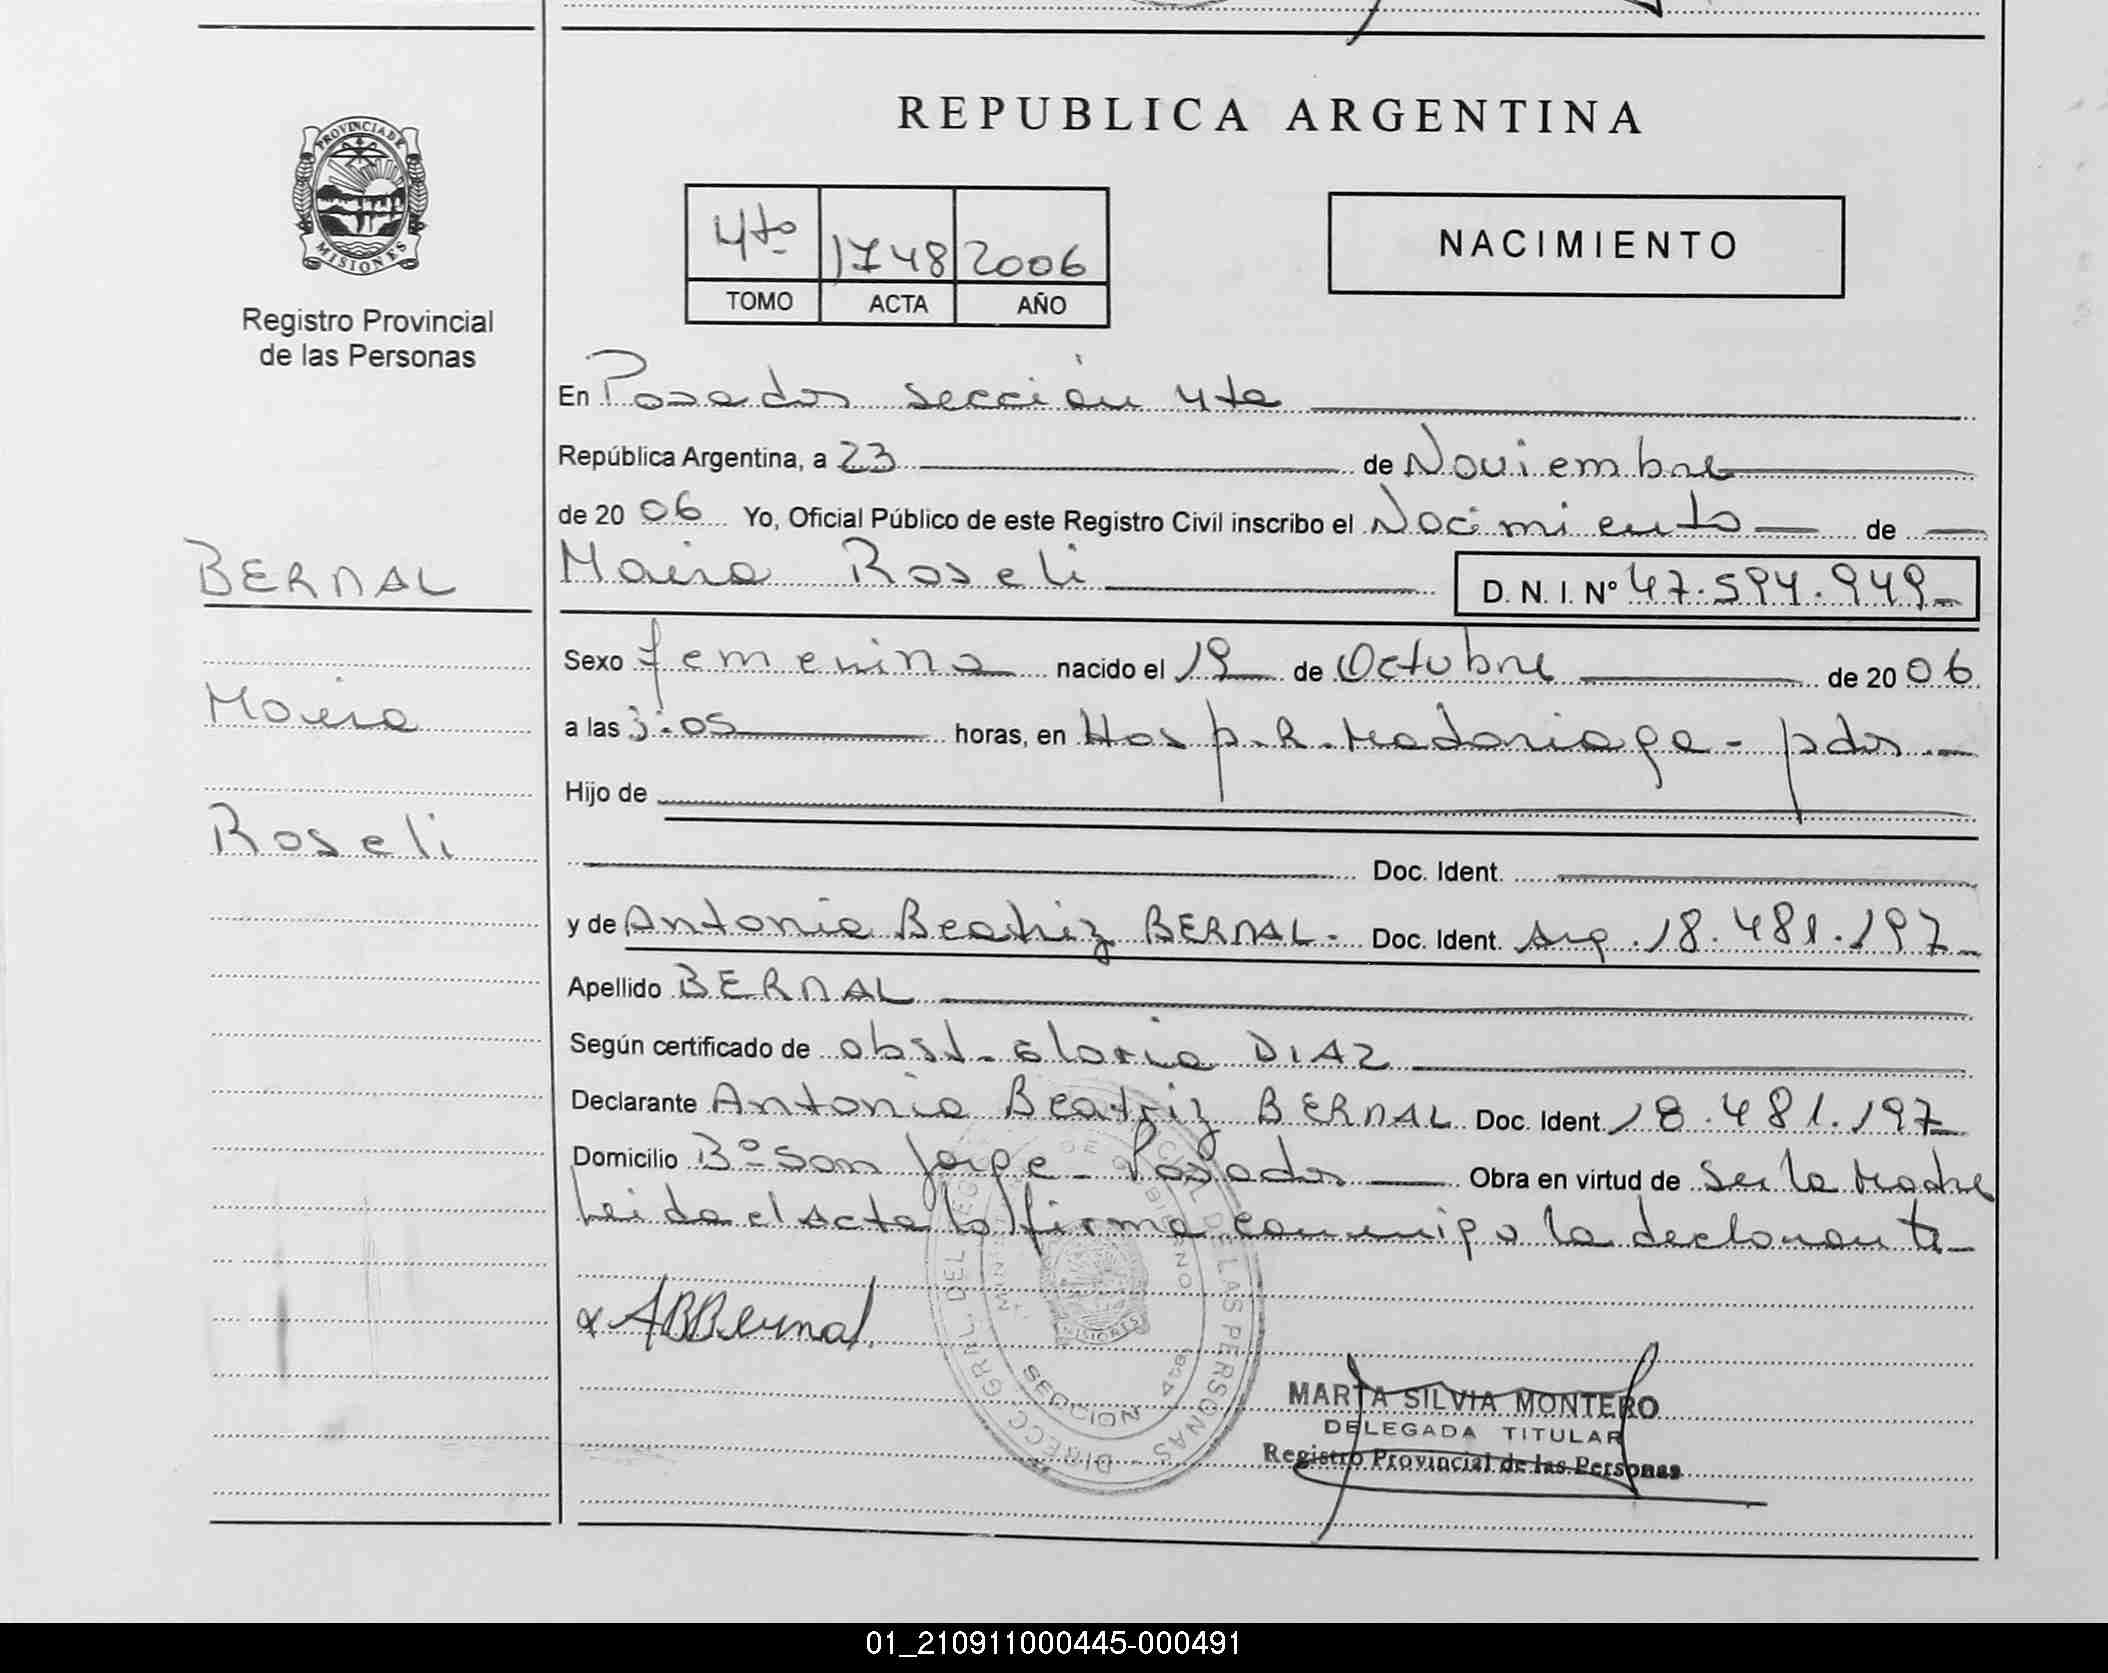 REPUBLICA ARGENTINA
PROVINCIA DE
MISIONES
Registro Provincial
de las Personas
4to 1748 2006
TOMO ACTA AÑO
NACIMIENTO
En Posadas sección 4ta
República Argentina, a 23 de Noviembre
de 2006 Yo, Oficial Público de este Registro Civil inscribo el Nacimiento de
BERNAL
Maira Roseli D. N. I. Nº 47.594.949
Sexo femenino nacido el 19 de Octubre de 2006
Maira
a las 3:05 horas, en Hosp. R. Madariaga - pdas
Hijo de
Roseli
Doc. Ident.
y de Antonia Beatriz BERNAL. Doc. Ident. Arg. 18.481.197
Apellido BERNAL
Según certificado de obst. Gloria DIAZ
Declarante Antonia Beatriz BERNAL Doc. Ident. 18.481.197
Domicilio Bº San Jorge - Posadas Obra en virtud de Ser la Madre
Leida el Acta la firma conmigo la declarante
x ABBernal.
DIRECC. GRAL. DEL REGISTRO PROVINCIAL DE LAS PERSONAS
MINISTERIO DE GOBIERNO
MISIONES
SECCION 4ta
MARTA SILVIA MONTERO
DELEGADA TITULAR
Registro Provincial de las Personas
01_210911000445-000491